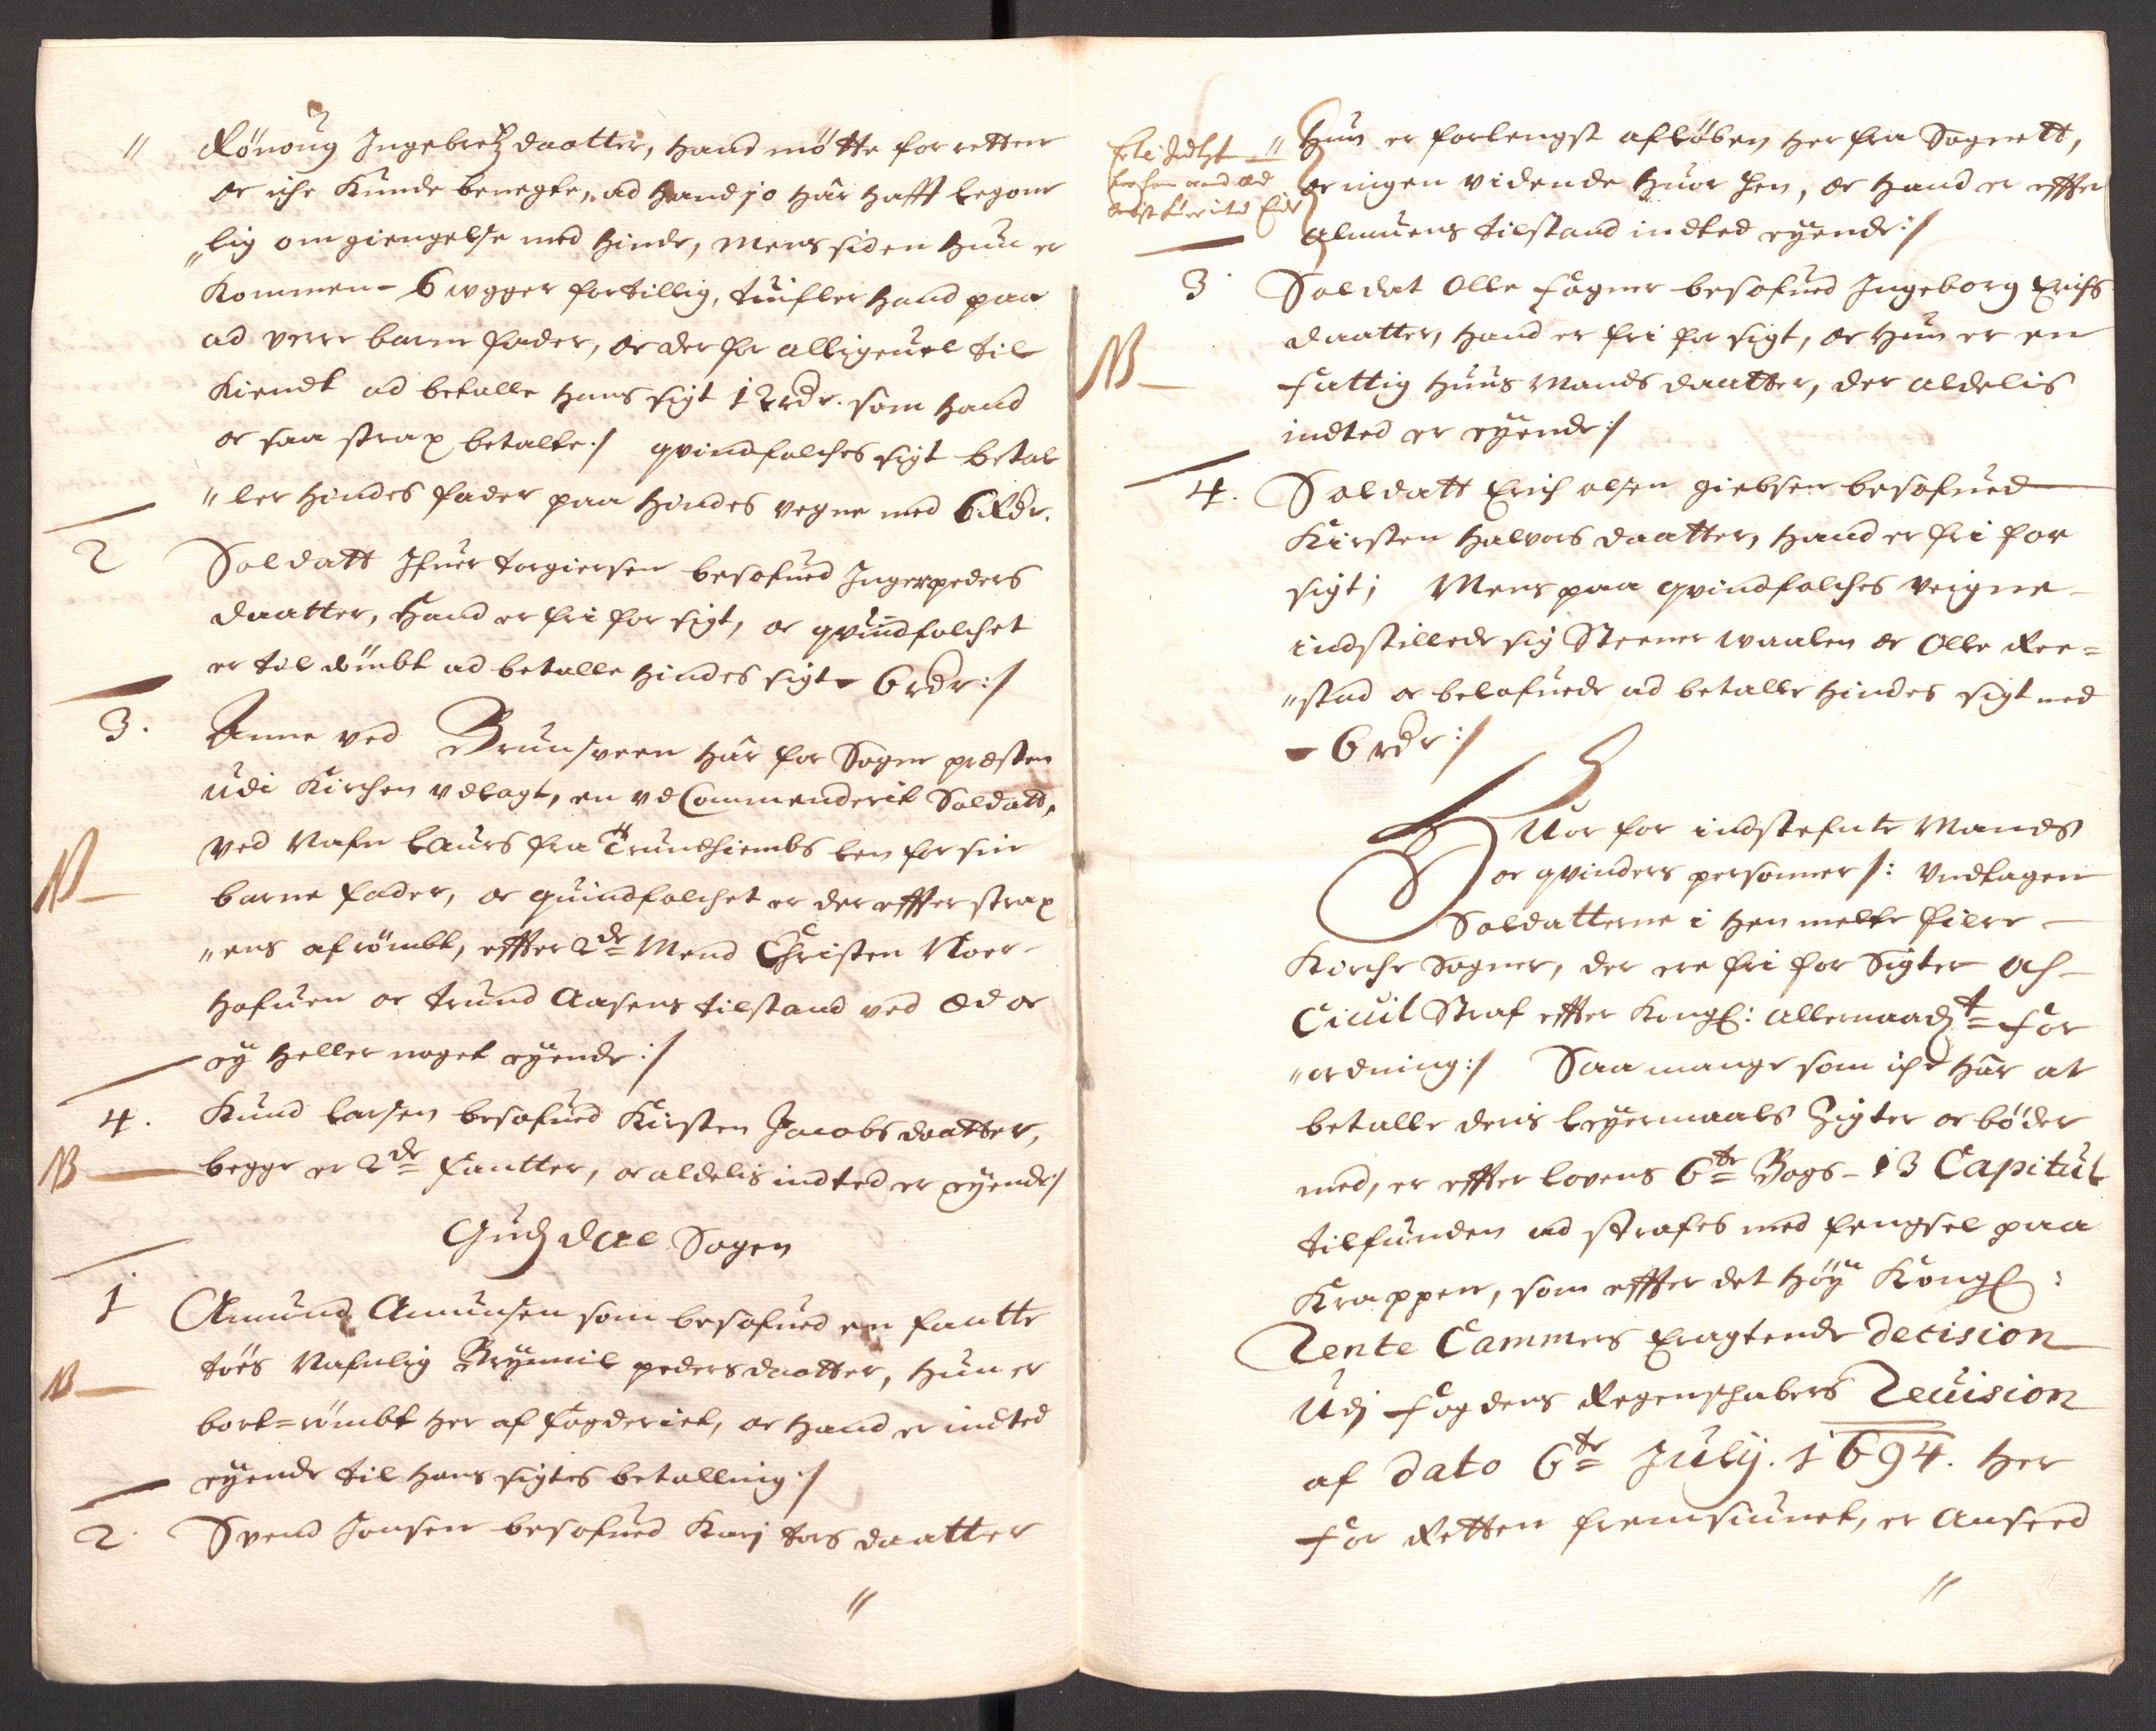 " Rönoug Ingebretz daatter, hand mötte for retten
oc iche kunde benegte, ad hand jo hâr hafft legom
"lig omgiengelse med hinde, mens siden hun er
kommen 6 wgger fortillig, tuifler hand paa
ad vere barne fader, oc der for alligeuel til
kiendt ad betalle hans sigt 12 rdr. som hand
oc saa strax betalte:/ qvindfolches sigt betal
"ler hindes fader paa hindes vegne med 6 Rdr.
2 Soldatt Ifuer torgiersen besofued Inger peders
daatter, hand er fri for sigt, oc qvindfolchet
er til dömbt ad betalle hindes sigt 6 rdr:/
3. Anne ved Brunsveen hâr for Sogne præsten
udi Kirchen vdlagt, en vdCommenderit Soldatt,
NB ved Nafn Laurs fra Trundhiembs len for sin
barne fader, oc quindfolchet er der effter strax
"ens afrömbt, effter 2de Mend Christen Noer-
hofuen oc trund Aasens tilstand ved Æd oc
ey heller noget eyende:/
4. Knud Larsen besofued Kirsten Jacobs daatter,
NB begge er 2de fantter, oc aldelis indted er eyende/
Gudzdals Sogen
1 Amund Amunsen som besofued en fantte
NB tös Nafnlig Brynnil peders daatter, hun er
bort=römbt her af fogderiet, oc hand er indted
eyende til hans sigtes betalling:/
2. Svend Jonsen besofued Kari tors daatter
"
" Hun er forlengst aflöben her fra Sognett,
oc ingen vidende huor hen, oc hand er effter
Almuens tilstand indted eyende:/
3. Soldat Olle fogner besofued Ingeborg Erichs
daatter, hand er fri for sigt, oc hun er en
NB fattig huus Mands daatter, der aldelis
indted er eyende:/
4. Soldatt Erich olsen giebsen besofued
Kirsten Halvors daatter, hand er fri for
sigt; Mens paa qvindfolches veigne
indstillede sig Steener Waalen oc Olle Ree=
"stad oc belofuede ad betalle hindes sigt med
6 rdr:/
Huor for indstefnte Mands
oc qvinders personner /: Vndtagen
Soldatterne i hen melte fiire
Kirche Sogner, der ere fri for Sigter och
Ciuil Straf effter Kongl: allernaadst for
"ordning:/ Saa mange som iche hâr at
betalle deris leyermaals Zigter oc böder
med, er effter lovens 6te Bogs 13 Capitul
tilfunden ad strafes med fengsel paa
Kroppen, som effter det höye Kongl:
Rente Cammers Eragtende decision
Udj fogdens Regenschabers Reuision
af dato 6te July. 1694. her
for Retten fremsiunet, er Anseed
"